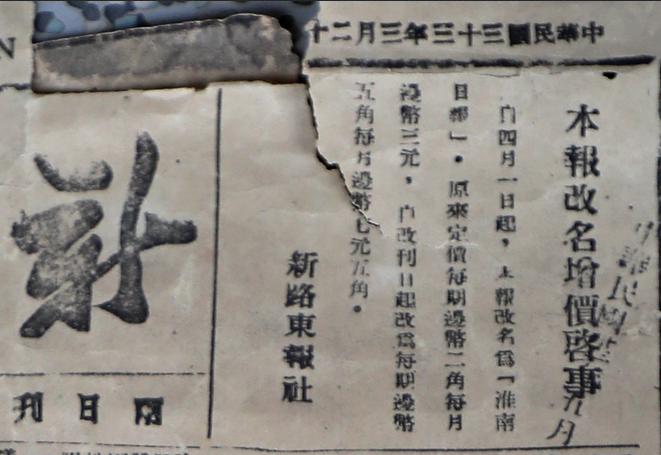 中華民國三十三年三月二十
本報改名增價啓事
自四月一日起，本報改名爲「淮南
日報」。原來定價每期邊幣二角每月
邊幣三元，自改刊日起改爲每期邊幣
五角每月邊幣七元五角。
新路東報社
中華民國
九月
日刊